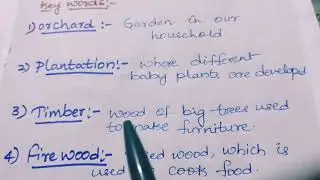 Key words:-
1) Orchard :- Garden in our
household
2) Plantation:- where different
baby plants are developed
3) Timber:- wood of big trees used
to make furniture.
4) Fire wood:- wood, which is
used cook food.